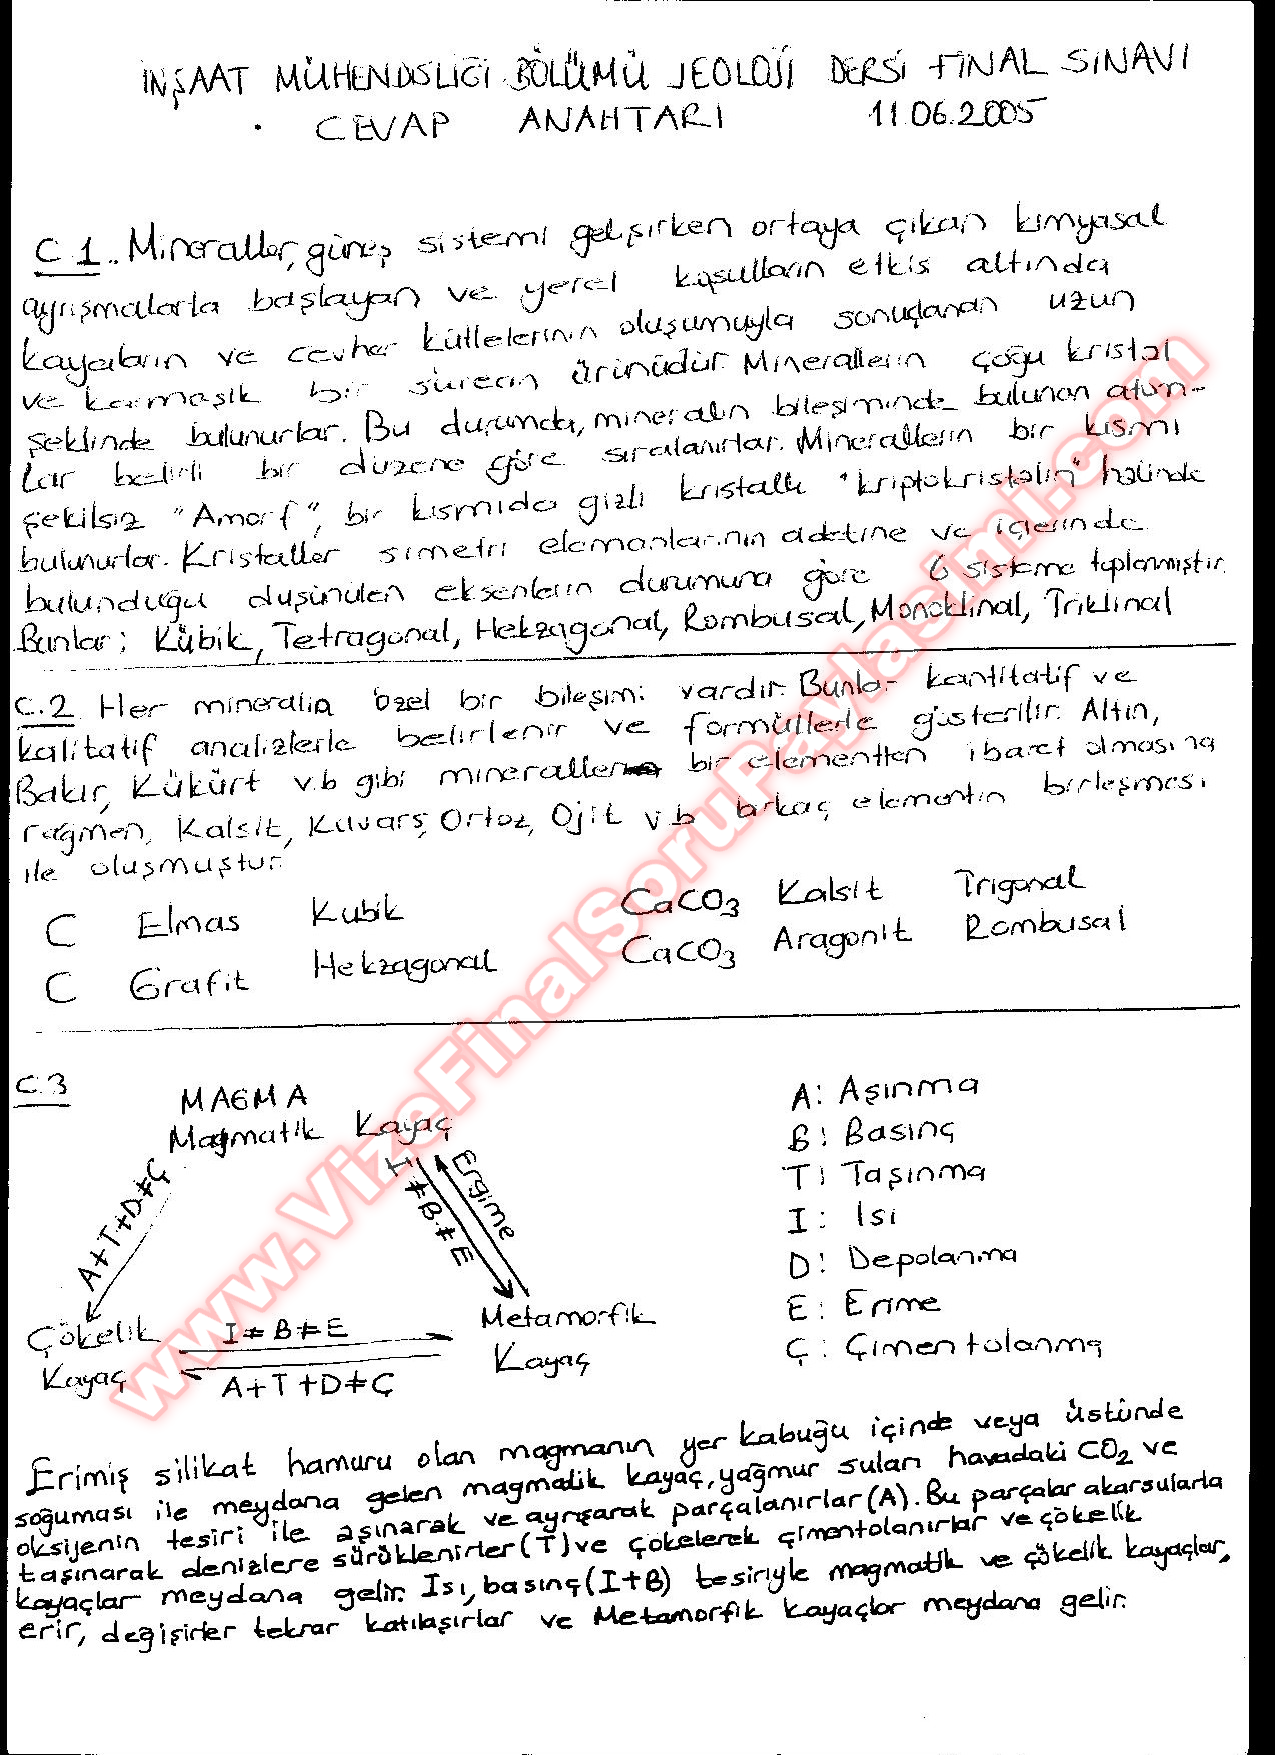 İNŞAAT MÜHENDİSLİĞİ BÖLÜMÜ JEOLOJİ DERSİ FİNAL SINAVI
CEVAP ANAHTARI 11.06.2005
C 1.. Mineraller, güneş sistemi gelişirken ortaya çıkan kimyasal
ayrışmalarla başlayan ve yerel koşulların etkis altında
kayaçların ve cevher kütlelerinin oluşumuyla sonuçlanan uzun
ve karmaşık bir sürecin ürünüdür. Minerallerin çoğu kristal
şeklinde bulunurlar. Bu durumda, mineralin bileşiminde bulunan atom-
lar belirli bir düzene göre sıralanırlar. Minerallerin bir kısmı
şekilsiz "Amorf", bir kısmıda gizli kristalli "kriptokristalin" halinde
bulunurlar. Kristaller simetri elemanlarının adetine ve içerinde
bulunduğu düşünülen eksenlerin durumuna göre 6 sisteme toplanmıştır.
Bunlar; Kübik, Tetragonal, Hekzagonal, Rombusal, Monoklinal, Triklinal
C.2 Her mineralin özel bir bileşimi vardır. Bunlar kantitatif ve
kalitatif analizlerle belirlenir ve formüllerle gösterilir. Altın,
Bakır, Kükürt v.b gibi mineraller bir elementten ibaret olmasına
rağmen, Kalsit, Kuvars, Ortoz, Ojit v.b birkaç elementin birleşmesi
ile oluşmuştur.
C Elmas Kubik CaCO3 Kalsit Trigonal
C Grafit Hekzagonal CaCO3 Aragonit Rombusal
C.3
MAGMA
Magmatik Kayaç
A+T+D+Ç
I+B+E
Ergime
Çökelik
Kayaç
I+B+E
A+T+D+Ç
Metamorfik
Kayaç
A: Aşınma
B: Basınç
T: Taşınma
I: Isı
D: Depolanma
E: Erime
Ç: Çimentolanma
Erimiş silikat hamuru olan magmanın yer kabuğu içinde veya üstünde
soğuması ile meydana gelen magmatik kayaç, yağmur suları havadaki CO2 ve
oksijenin tesiri ile aşınarak ve ayrışarak parçalanırlar (A). Bu parçalar akarsularla
taşınarak denizlere sürüklenirler (T) ve çökelerek çimentolanırlar ve çökelik
kayaçlar meydana gelir. Isı, basınç (I+B) tesiriyle magmatik ve çökelik kayaçlar,
erir, değişirler tekrar katılaşırlar ve Metamorfik kayaçlar meydana gelir.
www.VizeFinalSoruPaylasimi.com